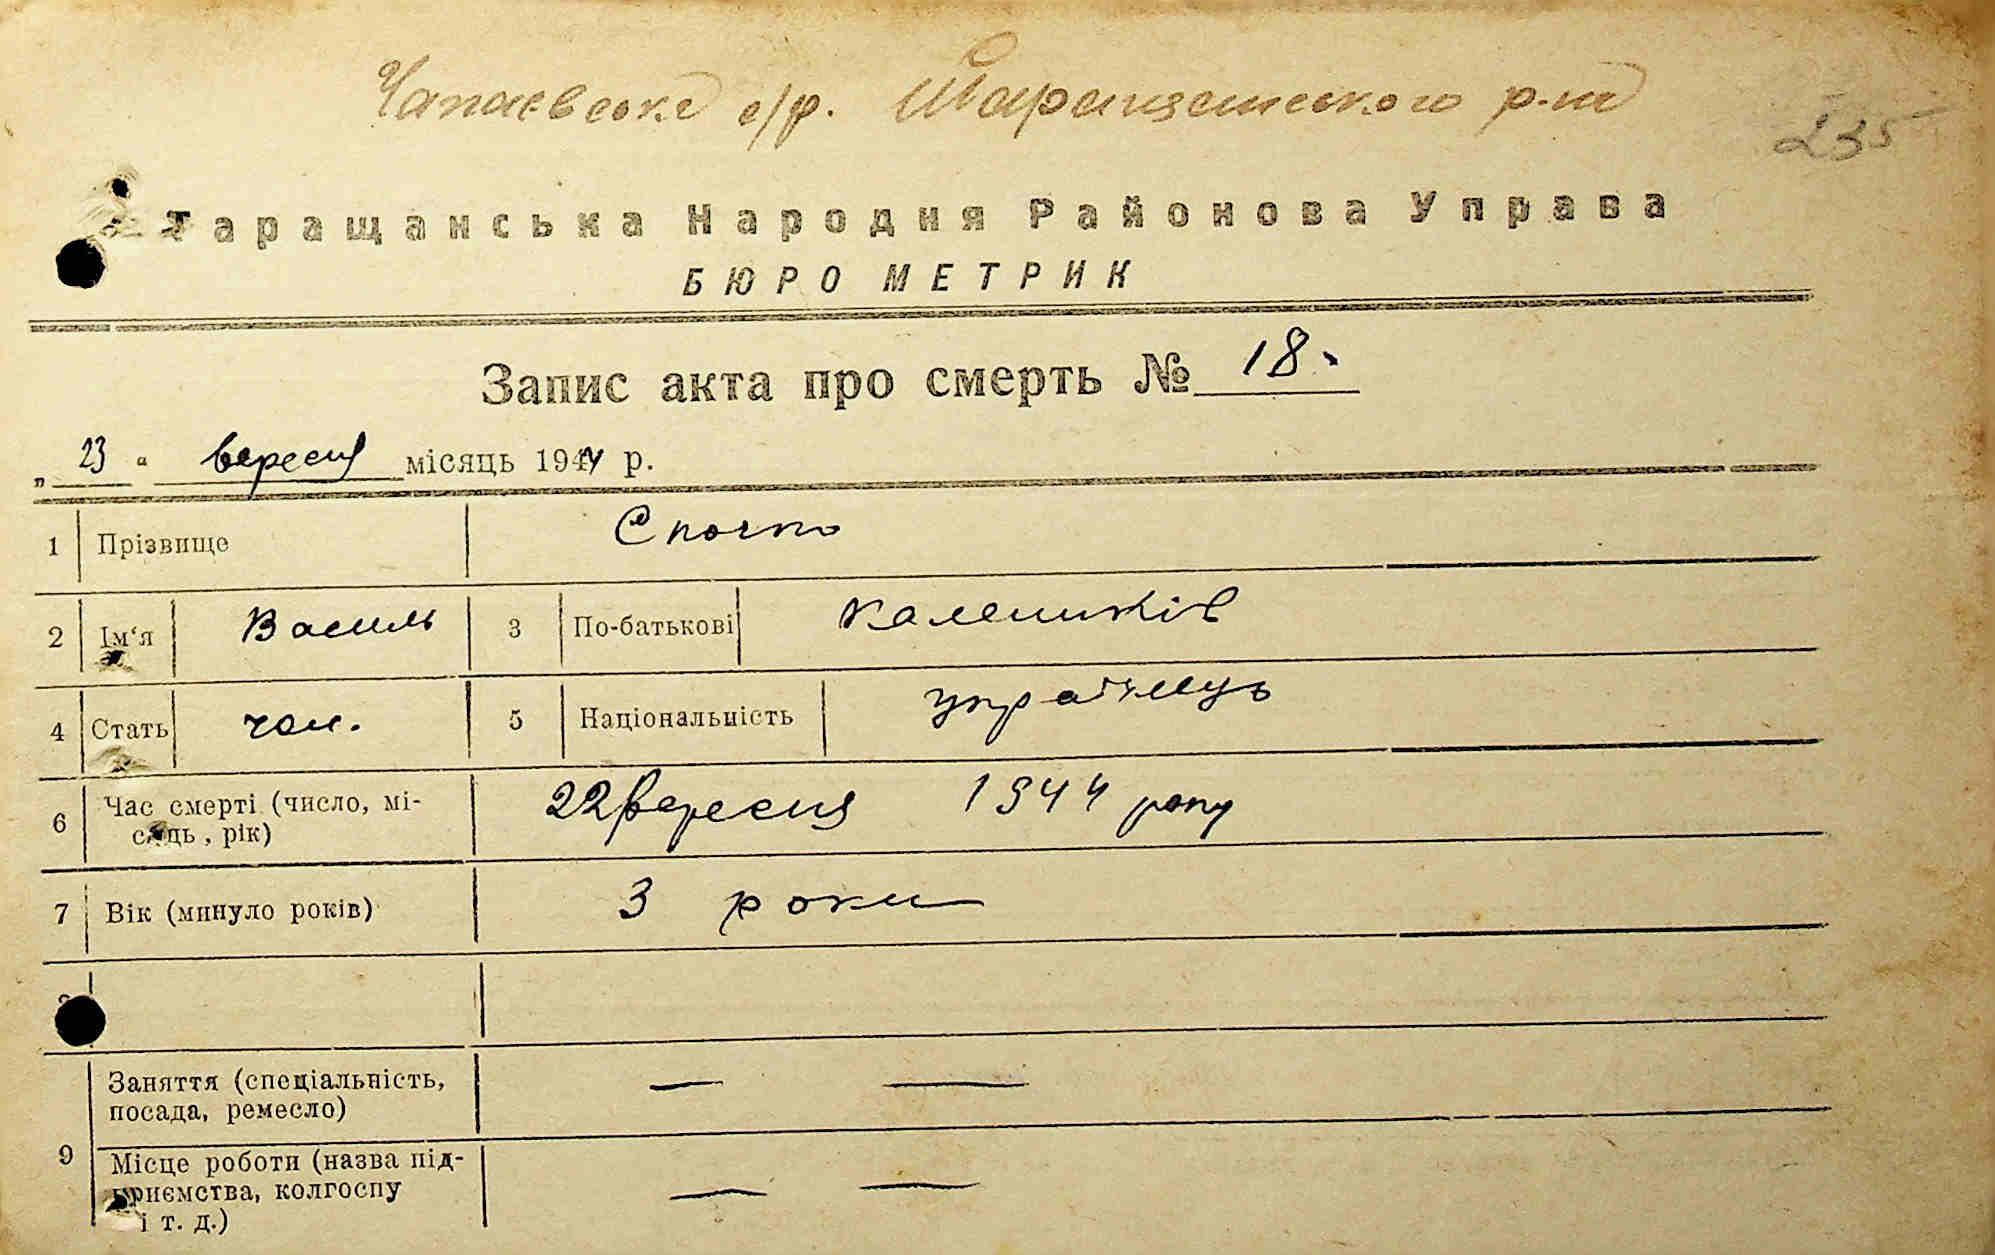 Чапаєвське с/р. Таращанського р-ну
235
Таращанська Народня Районова Управа
БЮРО МЕТРИК
Запис акта про смерть № 18.
„ 23 “ вересня місяць 1944 р.
1 Прізвище
2 Ім‘я Василь 3 По-батькові
4 Стать чол. 5 Національність українець
6 Час смерті (число, мі-
сяць, рік) 22 вересня 1944 року
7 Вік (минуло років) 3 роки
Заняття (спеціальність,
посада, ремесло) — —
9 Місце роботи (назва під-
приємства, колгоспу — —
і т. д.)